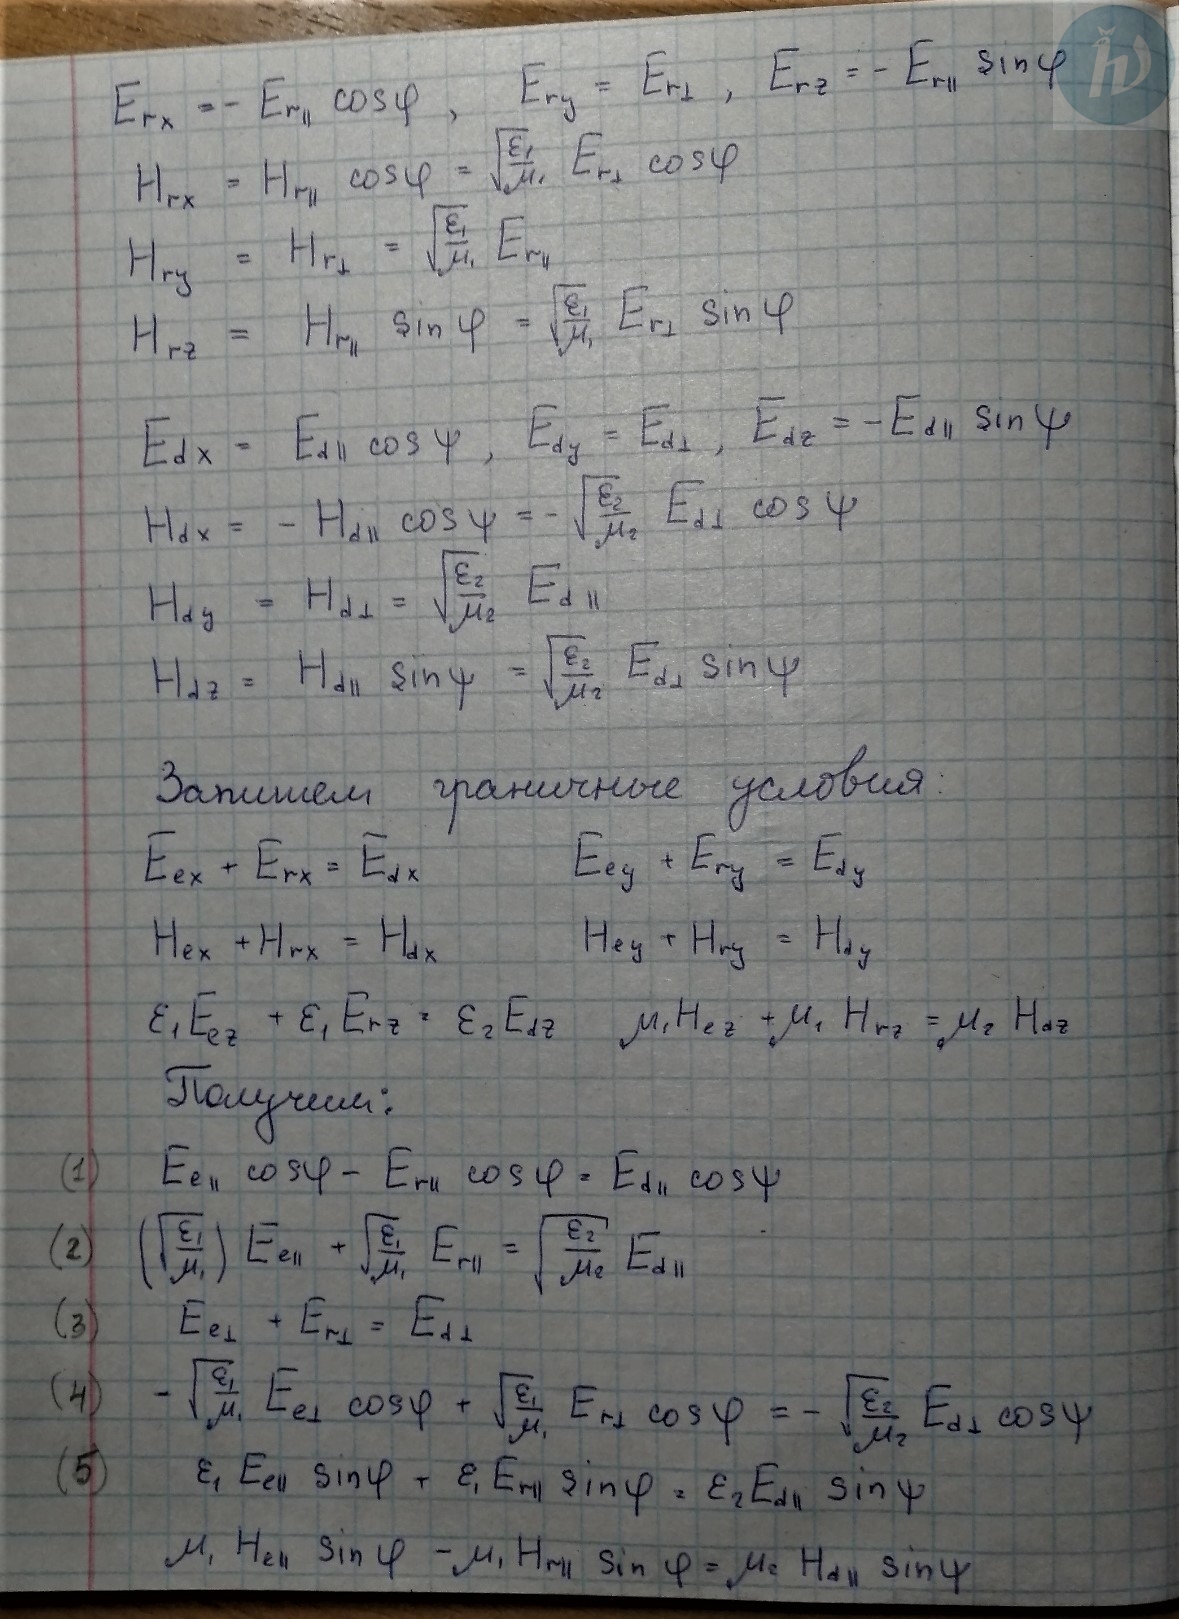 E_{rx} = - E_{r∥} cosφ , E_{ry} = E_{r⊥} , E_{rz} = - E_{r∥} sinφ
H_{rx} = H_{r∥} cosφ = √(ε₁/μ₁) E_{r⊥} cosφ
H_{ry} = H_{r⊥} = √(ε₁/μ₁) E_{r∥}
H_{rz} = H_{r∥} sinφ = √(ε₁/μ₁) E_{r⊥} sinφ
E_{dx} = E_{d∥} cosψ , E_{dy} = E_{d⊥} , E_{dz} = -E_{d∥} sinψ
H_{dx} = - H_{d∥} cosψ = - √(ε₂/μ₂) E_{d⊥} cosψ
H_{dy} = H_{d⊥} = √(ε₂/μ₂) E_{d∥}
H_{dz} = H_{d∥} sinψ = √(ε₂/μ₂) E_{d⊥} sinψ
Запишем граничные условия:
E_{ex} + E_{rx} = E_{dx} E_{ey} + E_{ry} = E_{dy}
H_{ex} + H_{rx} = H_{dx} H_{ey} + H_{ry} = H_{dy}
ε₁E_{ez} + ε₁E_{rz} = ε₂E_{dz} μ₁H_{ez} + μ₁H_{rz} = μ₂H_{dz}
Получим:
(1) E_{e∥} cosφ - E_{r∥} cosφ = E_{d∥} cosψ
(2) (√(ε₁/μ₁)) E_{e∥} + √(ε₁/μ₁) E_{r∥} = √(ε₂/μ₂) E_{d∥}
(3) E_{e⊥} + E_{r⊥} = E_{d⊥}
(4) - √(ε₁/μ₁) E_{e⊥} cosφ + √(ε₁/μ₁) E_{r⊥} cosφ = - √(ε₂/μ₂) E_{d⊥} cosψ
(5) ε₁E_{e∥} sinφ + ε₁E_{r∥} sinφ = ε₂E_{d∥} sinψ
μ₁H_{e∥} sinφ - μ₁H_{r∥} sinφ = μ₂H_{d∥} sinψ